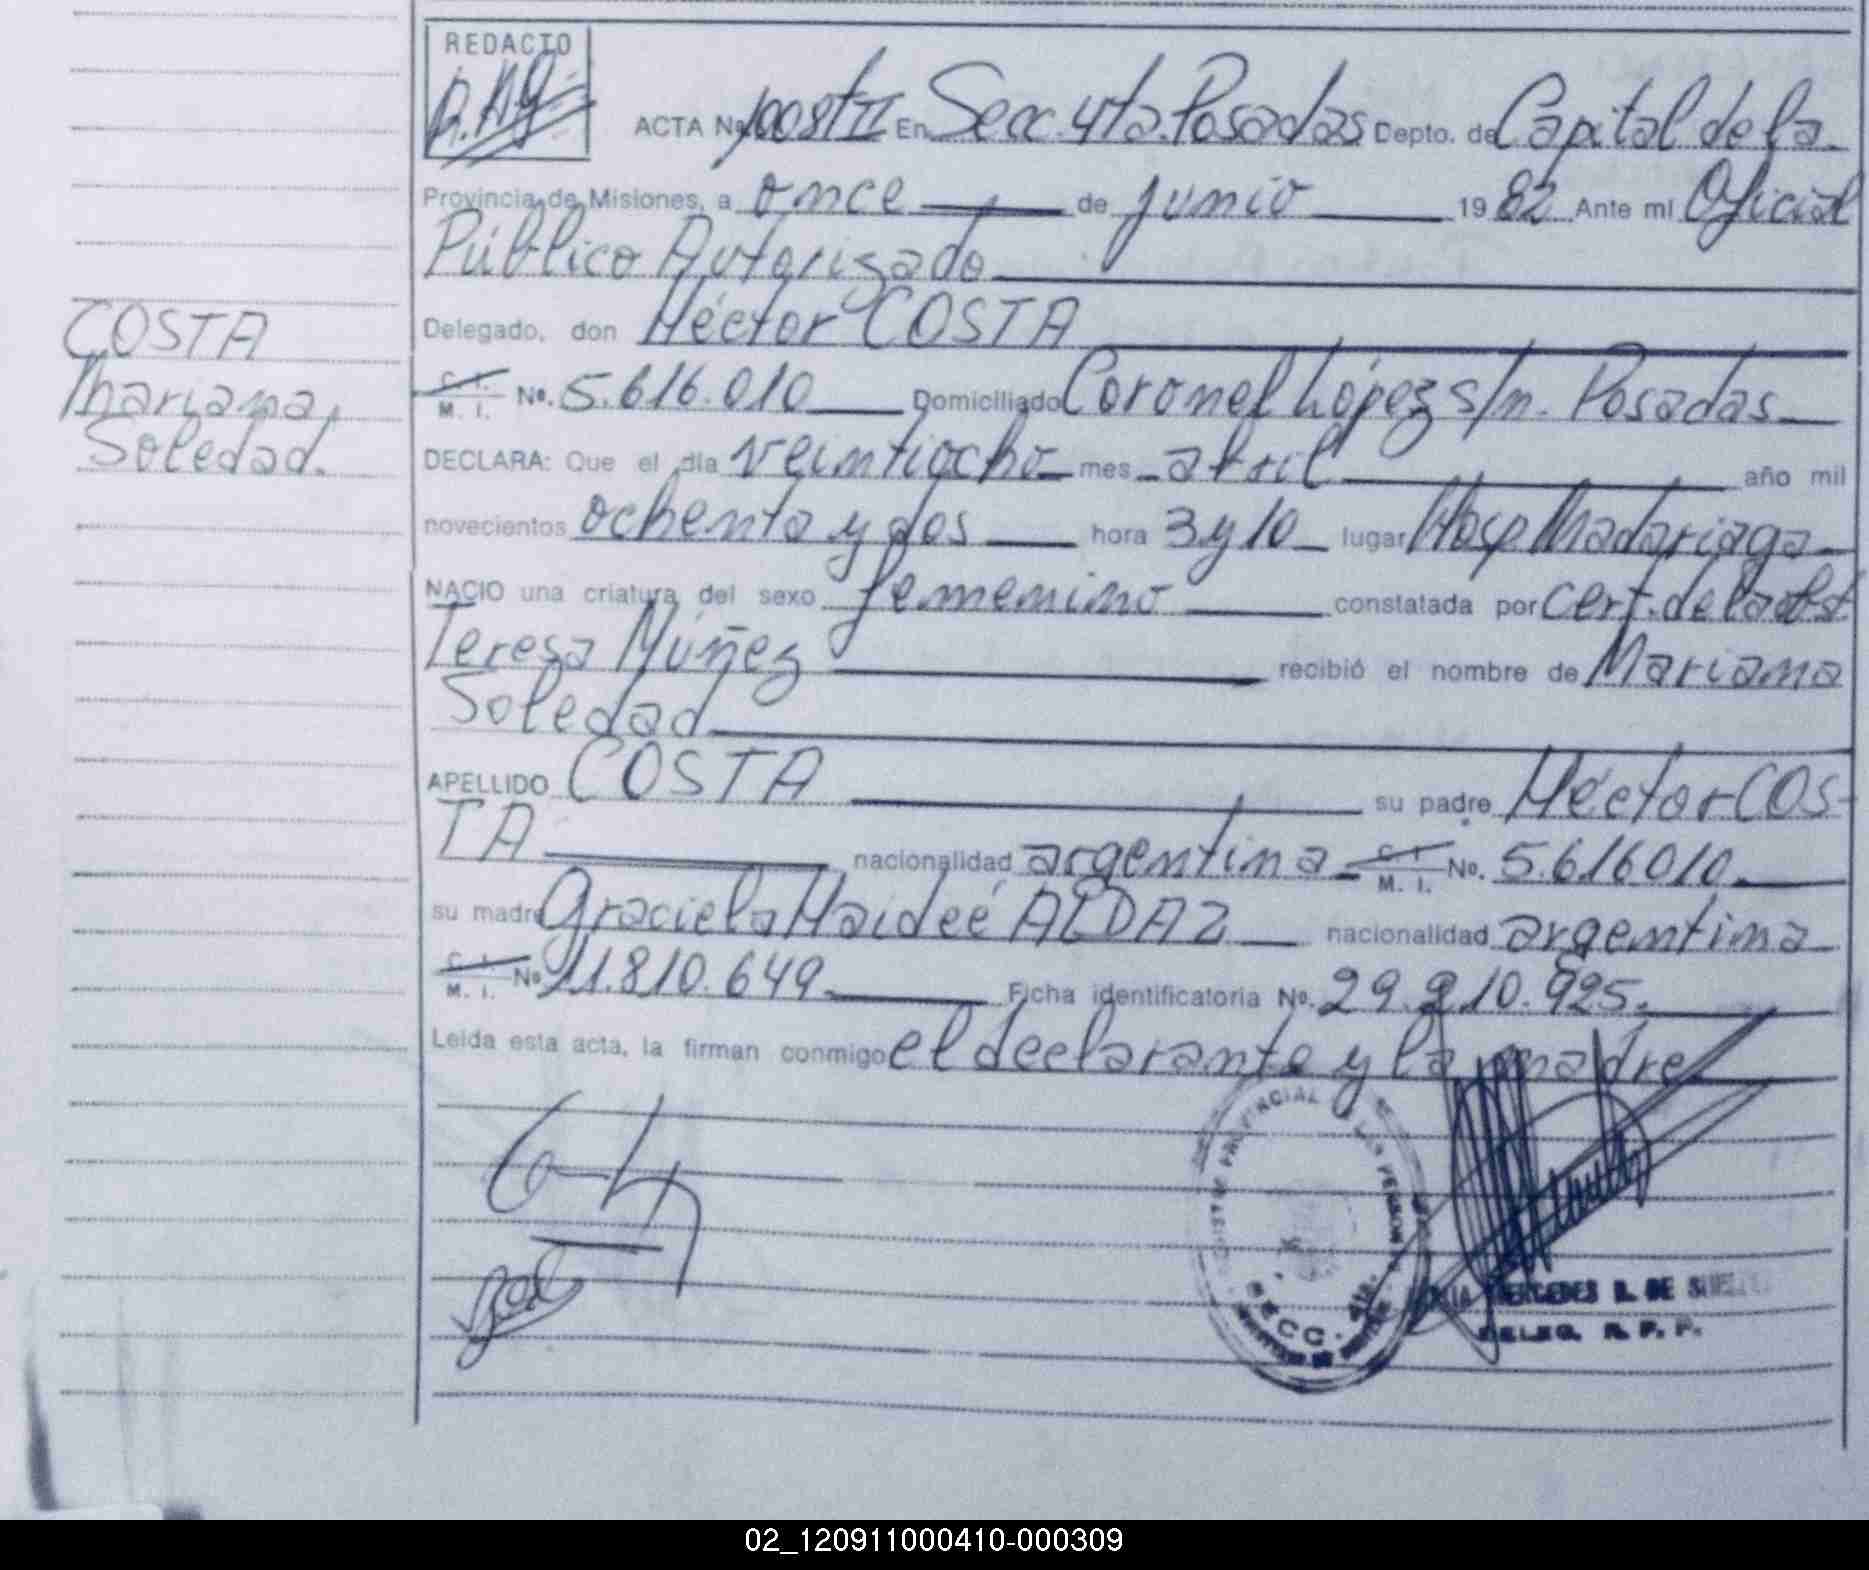 REDACTO
ACTA Nº 1008tII En Secc. 4ta. Posadas Depto. de Capital de la
Provincia de Misiones, a once de junio 1982 Ante mi Oficial
Público Autorizado
COSTA
Mariana,
Soledad.
Delegado, don Héctor COSTA
C. I.
M. I. No. 5.616.010 Domiciliado Coronel López s/n. Posadas
DECLARA: Que el dia veintiocho mes abril año mil
novecientos ochenta y dos hora 3 y 10 lugar Hosp Madariaga
NACIO una criatura del sexo femenino constatada por Cert. de la obst.
Teresa Múñez recibió el nombre de Mariana
Soledad
APELLIDO COSTA su padre Héctor COS-
TA nacionalidad argentina C. I. M. I. No. 5.616010
su madre Graciela Haideé ALDAZ nacionalidad argentina
C. I.
M. I. No. 11.810.649 Ficha identificatoria No. 29.210.925.
Leida esta acta, la firman conmigo el declarante y la madre
PROVINCIAL
SECC. 4ta.
MERCEDES
DELEG. R. P. P.
02_120911000410-000309